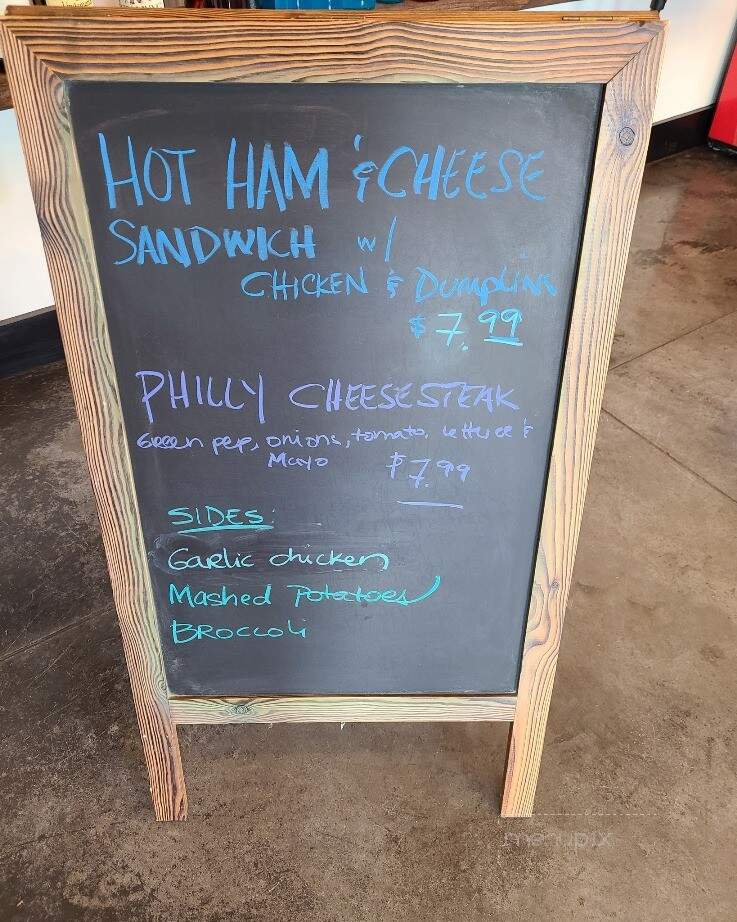 HOT HAM & CHEESE
SANDWICH w/
CHICKEN & Dumplins
$7.99
PHILLY CHEESESTEAK
Green pep, onions, tomato, lettuce &
Mayo $7.99
SIDES:
Garlic chicken
Mashed Potatoes
BROCCOLi
menupix